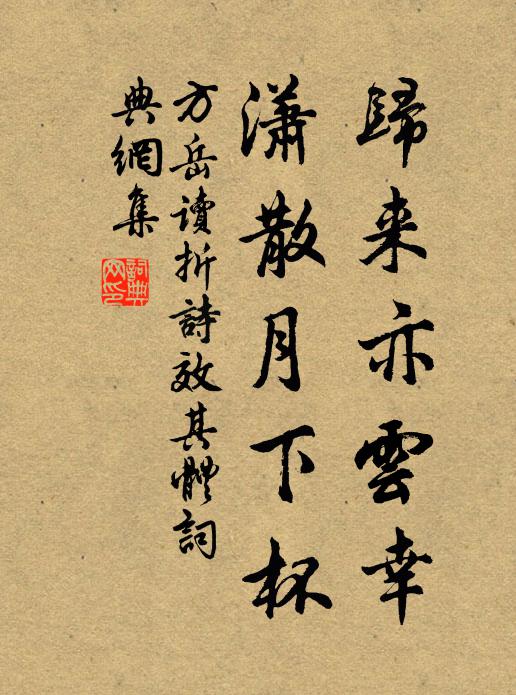 歸来亦雲幸
瀟散月下杯
方岳讀折詩效其體詞
典網集
詞典
网印